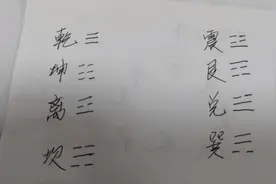 乾 ☰
坤 ☷
离 ☲
坎 ☵
震 ☳
艮 ☶
兑 ☱
巽 ☴